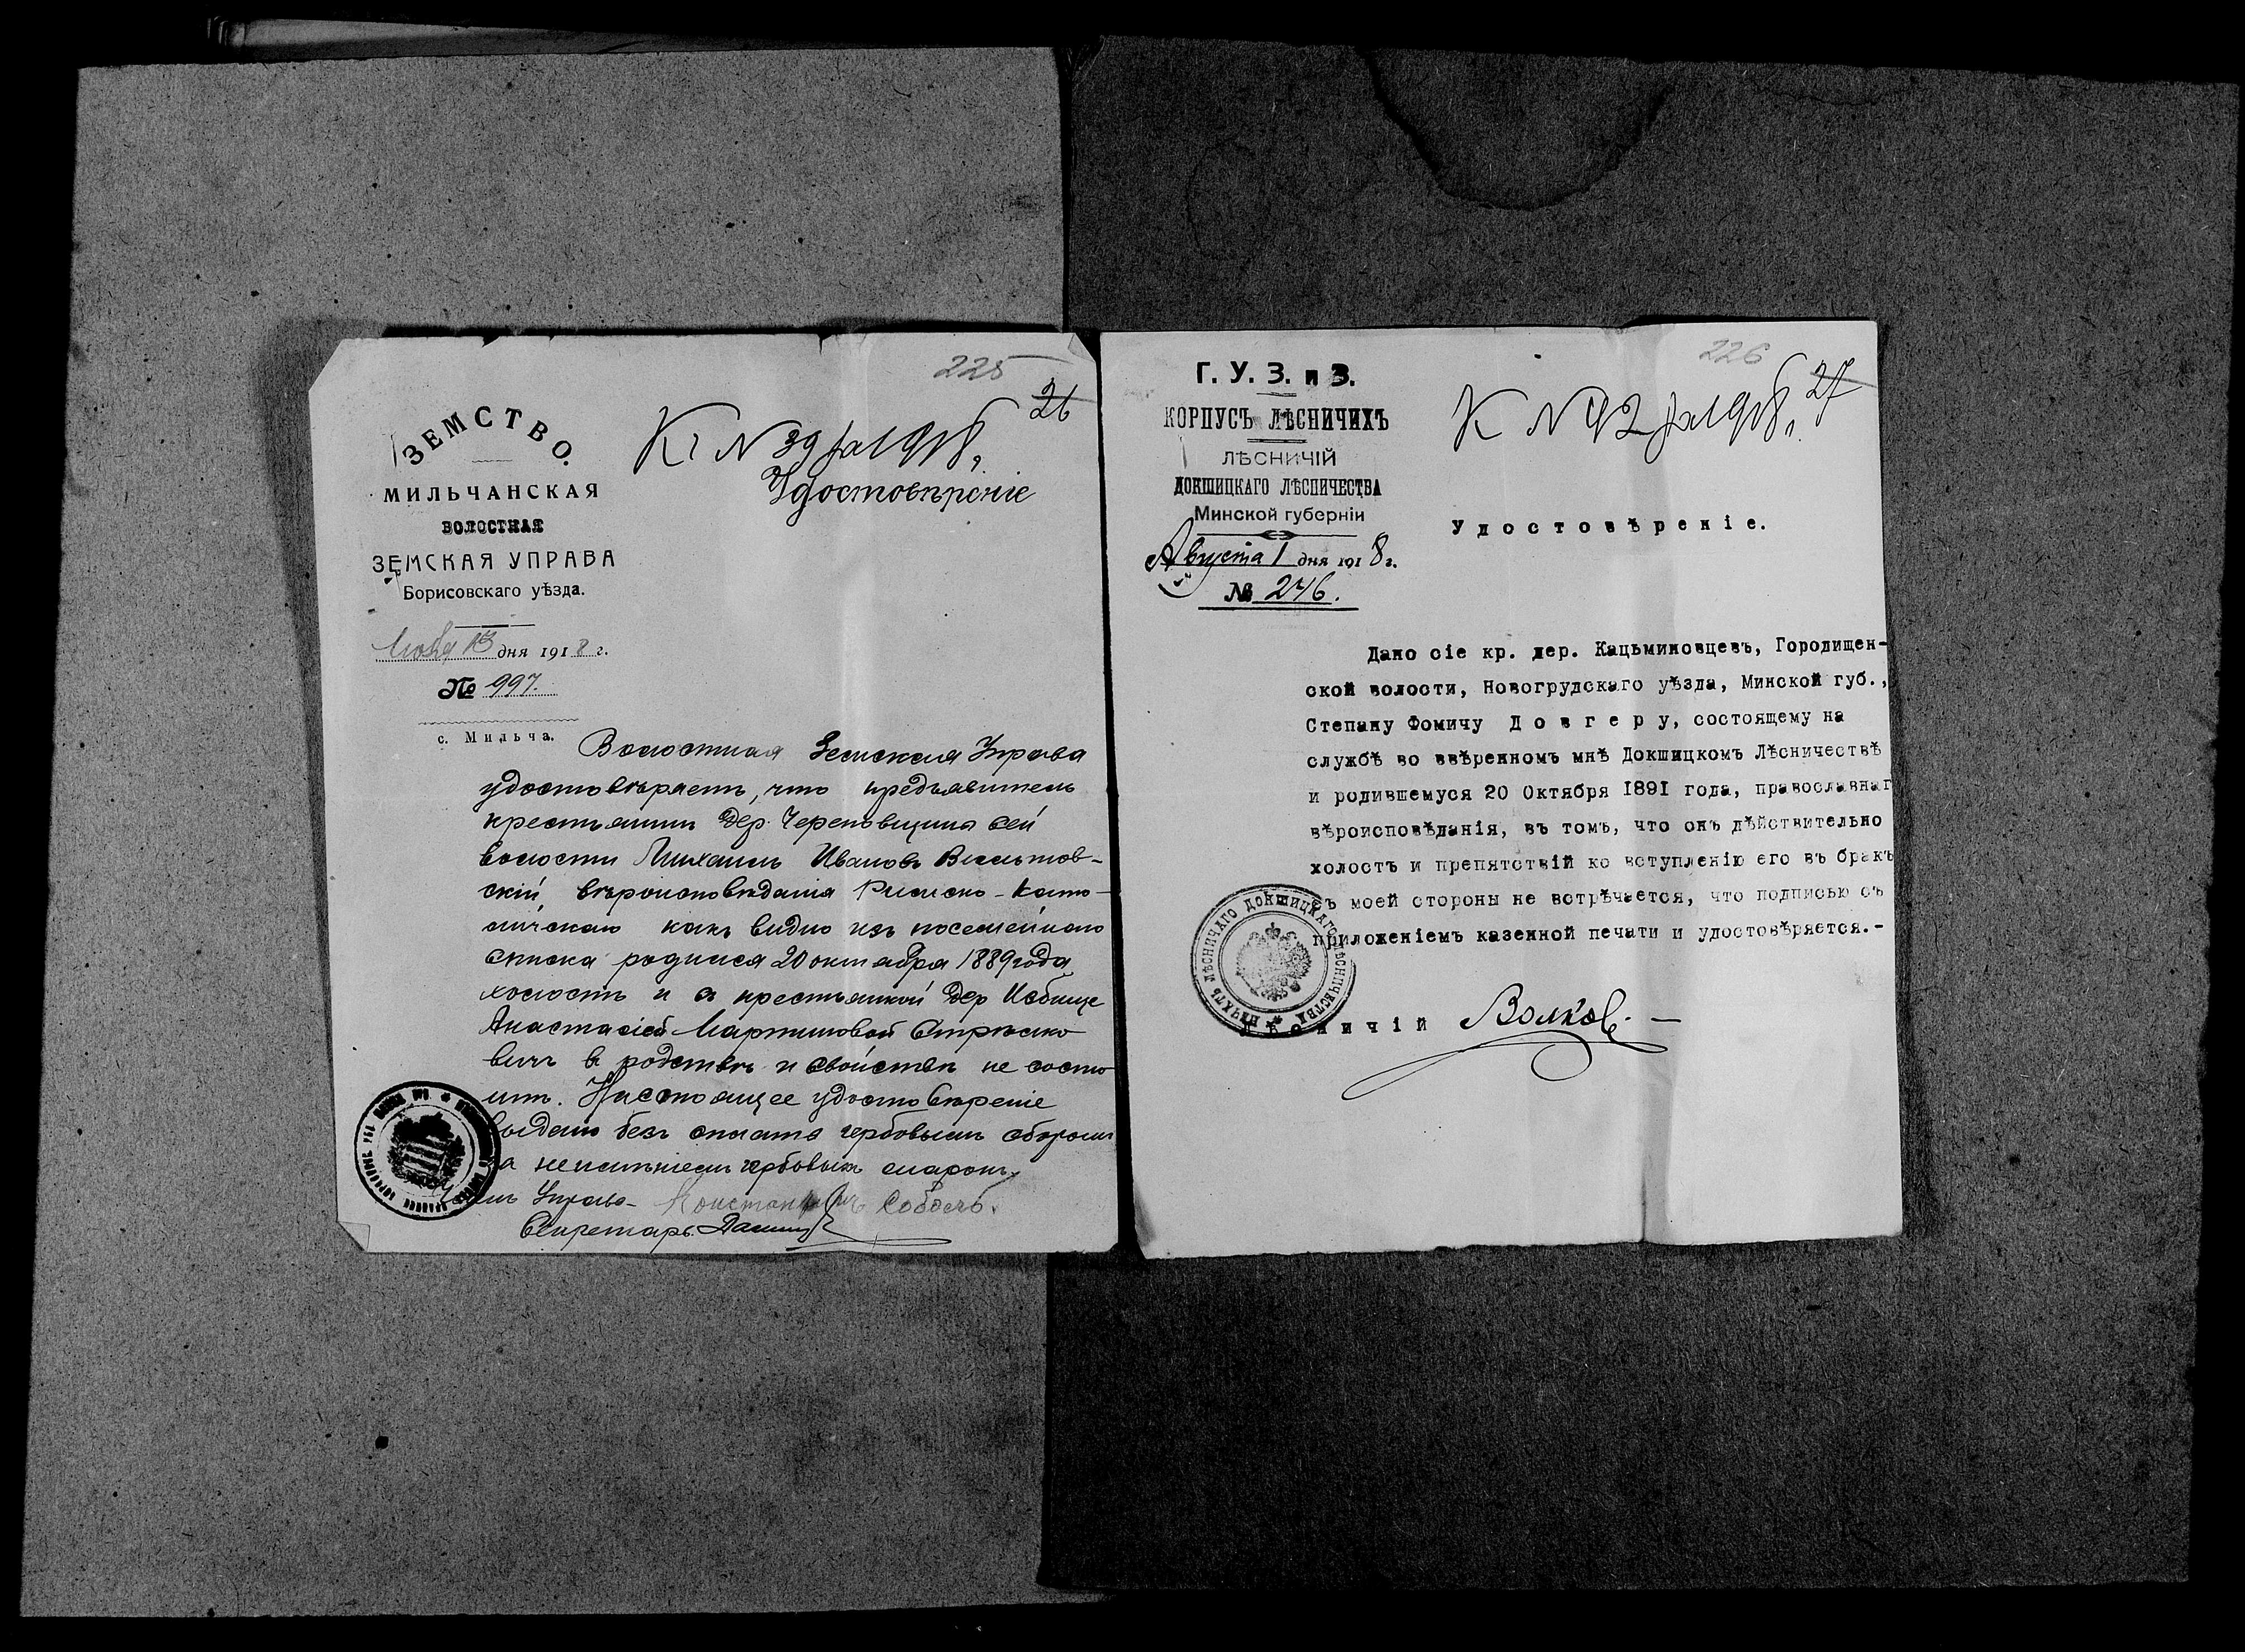 225
26
ЗЕМСТВО.
К № 39 за 1918 г.
Удостовѣреніе
МИЛЬЧАНСКАЯ
ВОЛОСТНАЯ
ЗЕМСКАЯ УПРАВА
Борисовскаго уѣзда.
13 дня 1918 г.
№ 997.
с. Мильча.
Волостная Земская Управа
удостовѣряетъ, что предъявитель
крестьянинъ дер. Череповщина сей
волости Михаилъ Ивановъ
скій, вѣроисповѣданія Римско-Като-
лическаго какъ видно изъ посемейнаго
списка родился 20 октября 1889 года
холостъ и съ крестьянкой дер Избище
Анастасіей Мартиновой Стрѣлко
вичъ въ родствѣ и свойствѣ не состо
итъ. Настоящее удостовѣреніе
выдано безъ оплаты гербовымъ сборомъ
за неимѣніемъ гербовыхъ марокъ.
Членъ Управы Константинъ Соболь.
Секретарь
226
27
Г. У. З. и З.
К № 42 за 1918 г.
КОРПУСЪ ЛѢСНИЧИХЪ
ЛѢСНИЧІЙ
ДОКШИЦКАГО ЛѢСНИЧЕСТВА
Минской губерніи
Удостовѣреніе.
Августа 1 дня 1918 г.
№ 246.
Дано сіе кр. дер. Кацьминовцевъ, Городищен-
ской волости, Новогрудскаго уѣзда, Минской губ.,
Степану Фомичу Довгеру, состоящему на
службѣ во ввѣренномъ мнѣ Докшицкомъ Лѣсничествѣ
и родившемуся 20 Октября 1891 года, православнаг
вѣроисповѣданія, въ томъ, что онъ дѣйствительно
холостъ и препятствій ко вступленію его въ бракъ
съ моей стороны не встрѣчается, что подписью съ
приложеніемъ казенной печати и удостовѣряется.-
ПЕЧАТЬ ЛѢСНИЧАГО ДОКШИЦКАГО ЛѢСНИЧЕСТВА
Лѣсничій Волковъ. —